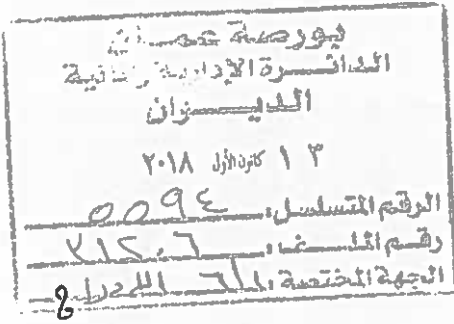 بورصة عمان
الدائرة الإدارية والمالية
الديوان
١٣ كانون الأول ٢٠١٨
الرقم المتسلسل: ٥٥٩٤
رقم الملف:
الجهة المختصة: